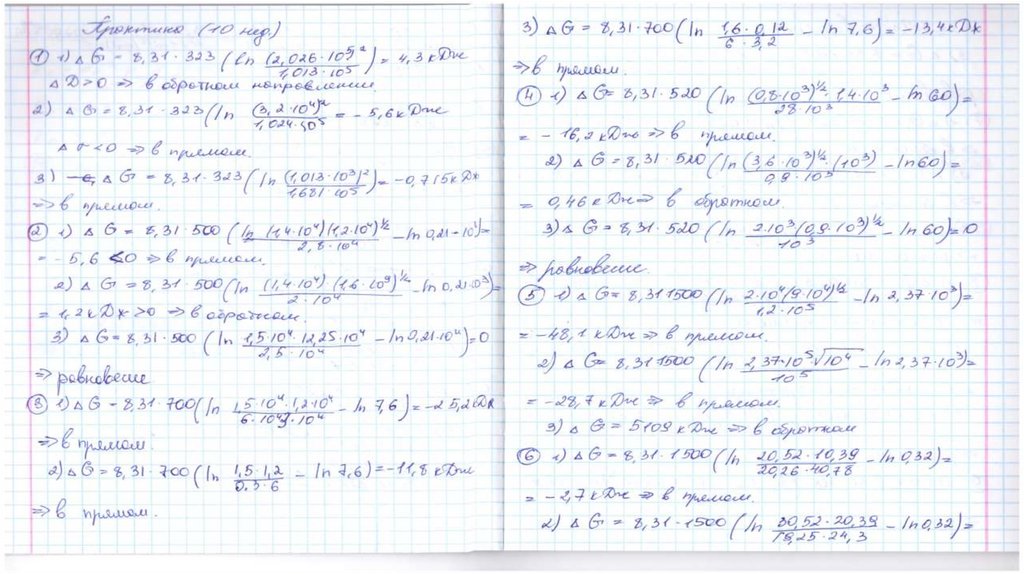 Практика (10 нед)
① 1) ΔG = 8,31·323 (ln (2,026·10⁵)² / 1,013·10⁵) = 4,3 кДж
ΔD>0 => в обратном направлении
2) ΔG = 8,31·323 (ln (3,2·10⁴)² / 1,024·10⁵) = -5,6 кДж
Δσ<0 => в прямом.
3) ΔG = 8,31·323 (ln (1,013·10³)² / 1,681·10⁵) = -0,715 кДж
=> в прямом.
② 1) ΔG = 8,31·500 (ln (1,4·10⁴)(1,2·10⁴)^½ / 2,8·10⁴ - ln 0,21·10⁴) =
= -5,6 <0 => в прямом.
2) ΔG = 8,31·500 (ln (1,4·10⁴)(1,6·10⁹)^½ / 2·10⁴ - ln 0,21·10³) =
= 1,2 кДж >0 => в обратном.
3) ΔG = 8,31·500 (ln 1,5·10⁴·12,25·10⁴ / 2,5·10⁴ - ln 0,21·10⁴) = 0
=> равновесие
③ 1) ΔG = 8,31·700 (ln 1,5·10⁴·1,2·10⁴ / 6·10⁴·3·10⁴ - ln 7,6) = -25,2 кДж
=> в прямом.
2) ΔG = 8,31·700 (ln 1,5·1,2 / 0,3·6 - ln 7,6) = -11,8 кДж
=> в прямом.
3) ΔG = 8,31·700 (ln 1,6·0,12 / 6·3,2 - ln 7,6) = -13,4 кДж
=> в прямом.
④ 1) ΔG = 8,31·520 (ln (0,8·10³)^½·1,4·10³ / 28·10³ - ln 60) =
= -16,2 кДж => в прямом.
2) ΔG = 8,31·520 (ln (3,6·10³)^½·(10³) / 0,9·10³ - ln 60) =
= 0,46 кДж => в обратном
3) ΔG = 8,31·520 (ln 2·10³(0,9·10³)^½ / 10³ - ln 60) = 0
=> равновесие.
⑤ 1) ΔG = 8,31 1500 (ln 2·10⁴(9·10⁴)^½ / 1,2·10⁵ - ln 2,37·10³) =
= -48,1 кДж => в прямом.
2) ΔG = 8,31 1500 (ln 2,37·10⁵√10⁴ / 10⁵ - ln 2,37·10³) =
= -28,7 кДж => в прямом.
3) ΔG = 5109 кДж => в обратном
⑥ 1) ΔG = 8,31·1500 (ln 20,52·10,39 / 20,26·40,78 - ln 0,32) =
= -2,7 кДж => в прямом.
2) ΔG = 8,31·1500 (ln 30,52·20,39 / 19,25·24,3 - ln 0,32) =